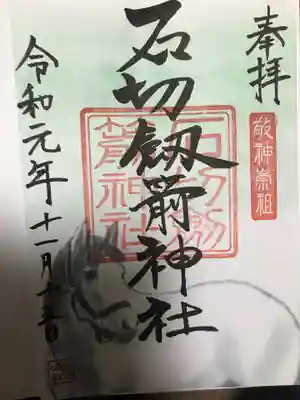 奉拝
敬神崇祖
石切劔箭神社
石切劔
箭神社
令和元年十一月十五日